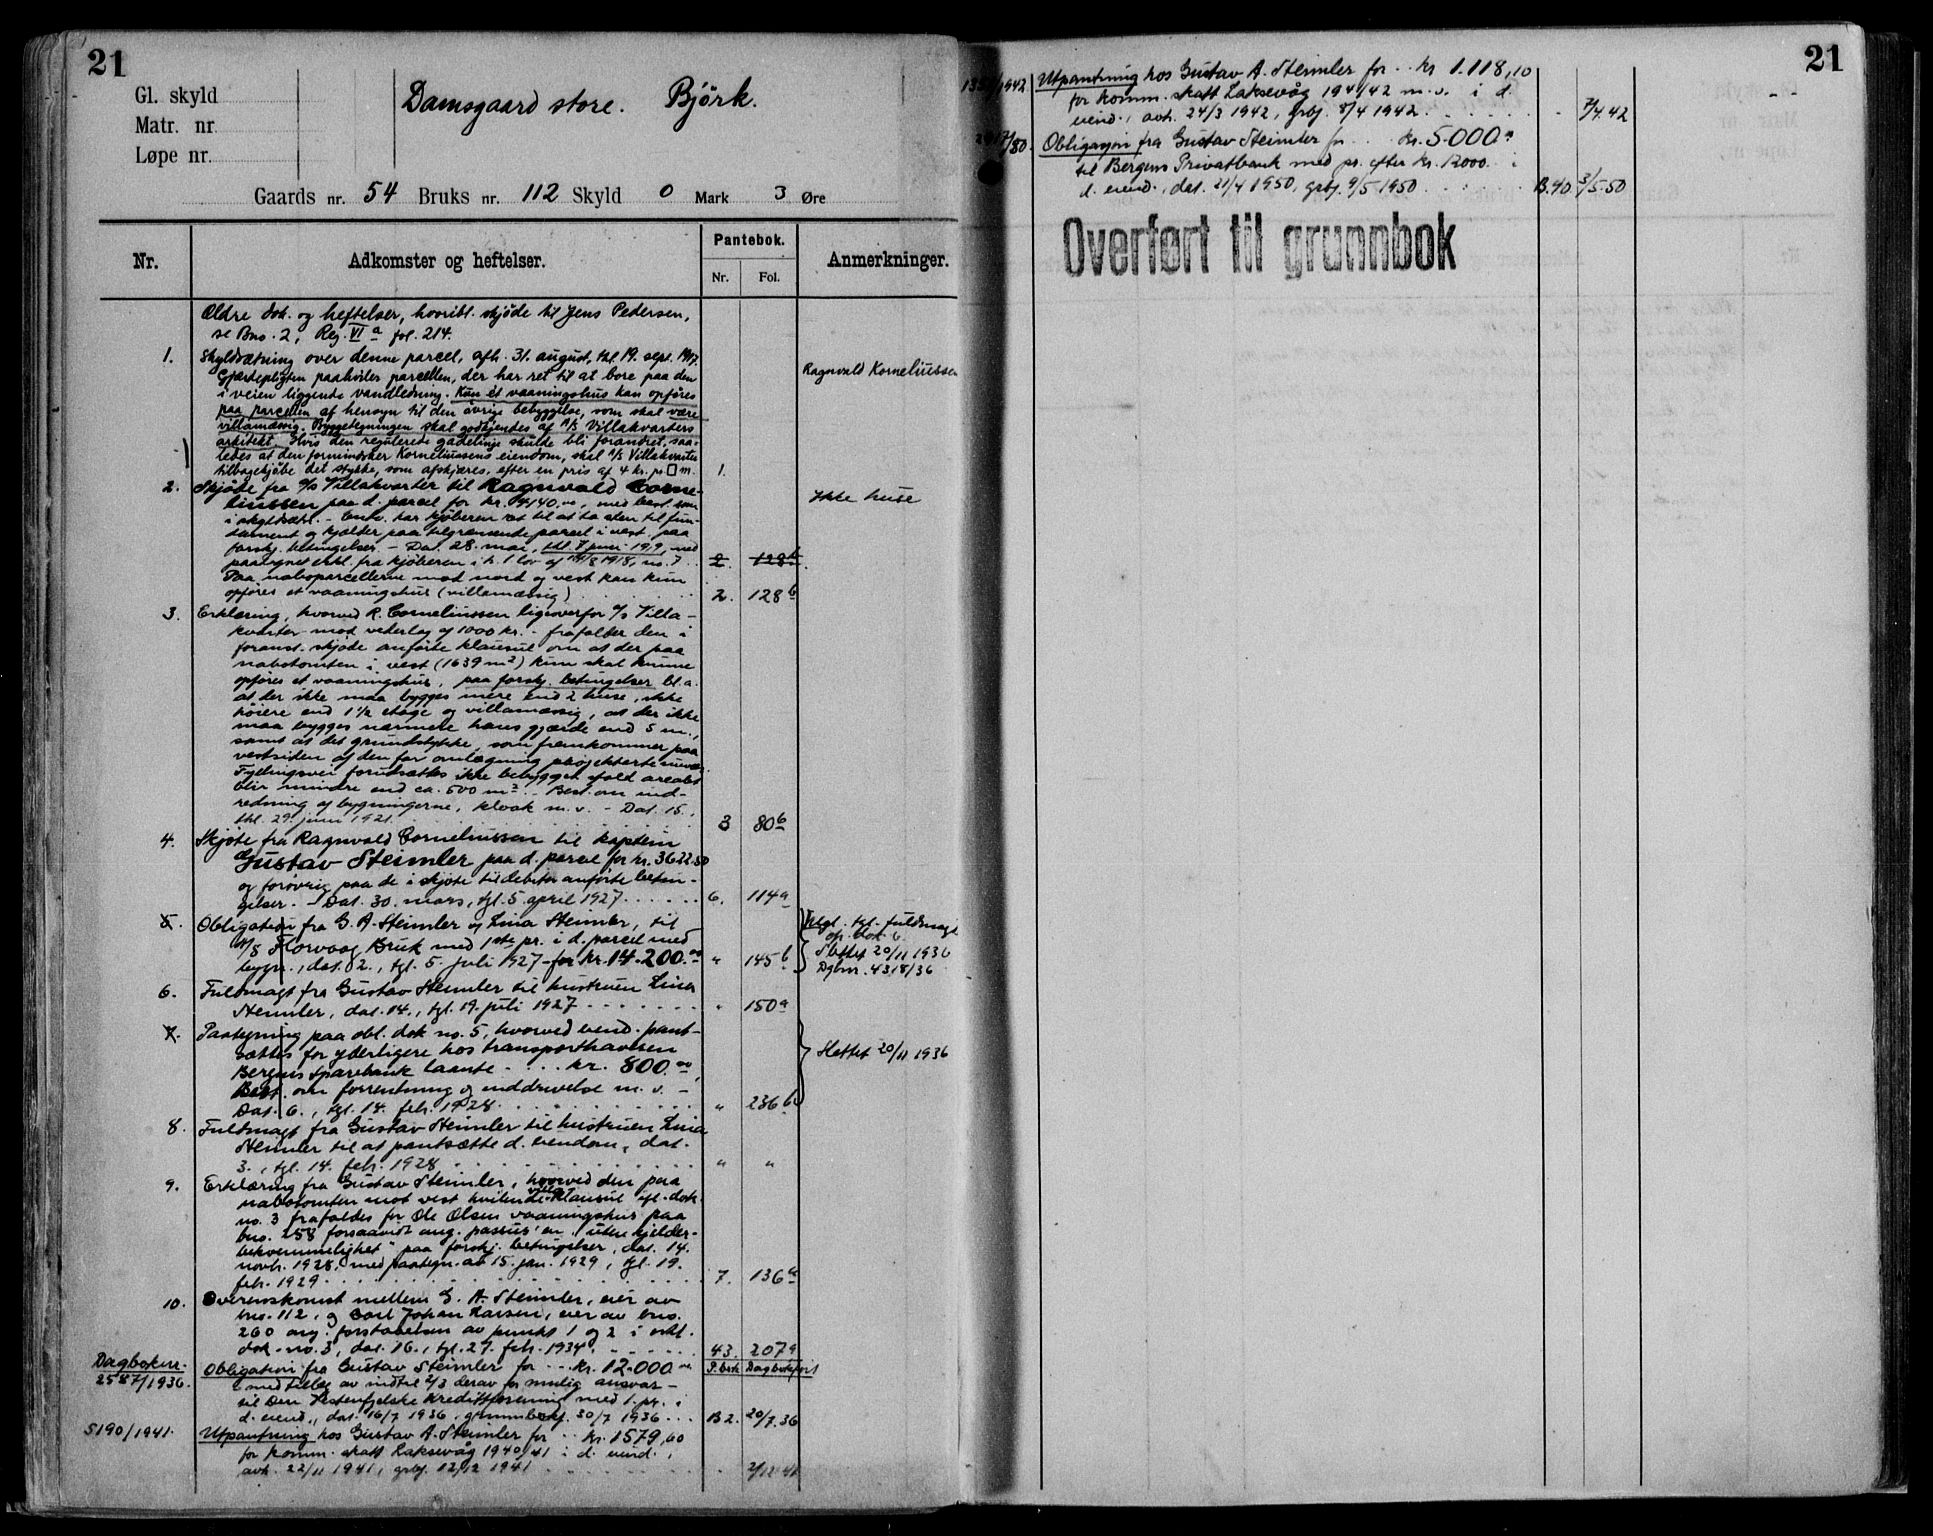 21
Gl. skyld
Matr. nr.
Løpe nr.
Damsgaard store. Björk.
Gaards nr. 54 Bruks nr. 112 Skyld 0 Mark 3 Øre
Nr.
Adkomster og heftelser.
Pantebok.
Nr. Fol.
Anmerkninger.
Ældre dok. og heftelser, hvoribl. skjøde til Jens Pedersen,
se Bno. 2, Reg. VI a fol. 214.
1. Skyldsætning over denne parcel, afh. 31. august, tkl. 19. sept. 1917.
Gjærdepligten paahviler parcellen, der har ret til at bore paa den
Ragnvald Korneliussen
i veien liggende vandledning. Kun ét vaaningshus kan opføres
paa parcellen af hensyn til den øvrige bebyggelse, som skal være
villamæssig. Byggetegningen skal godkjendes af A/S Villakvarters
arkitekt. Hvis den regulerede gadelinje skulde bli forandret, saa-
ledes at den formindsker Korneliussens eiendom, skal A/S Villakvarter
tilbagekjøbe det stykke, som afskjæres, efter en pris af 4 kr. pr. □ m. 1.
2. Skjøde fra A/S Villakvarter til Ragnvald Corne-
liussen paa d. parcel for kr. 4140.00, med best. som
Ikke huse
i skyldsætn. - Endv. har kjøberen ret til at ta sten til fun-
dament og kjælder paa tilgrænsende parcel i vest paa
forskj. betingelser. - Dat. 28. mai, tkl. 7 juni 1919, med
paategnet erkl. fra kjøberen i h. t. lov af 16/8 1918, no. 7 . . 2. 128b
Paa naboparcellerne mod nord og vest kan kun
opføres et vaaningshus (villamæssig) . . . . 2. 128b
3. Erklæring, hvorved R. Corneliussen ligeoverfor A/S Villa-
kvarter mod vederlag af 1000 kr. - frafalder den i
foranst. skjøde anførte klausul om at der paa
nabotomten i vest (1639 m2) kun skal kunne
opføres et vaaningshus, paa forskj. betingelser bl.a.
at der ikke maa bygges mere end 2 huse, ikke
høiere end 1 1/2 etage og villamæssig, at der ikke
maa bygges nærmere hans gjærde end 5 m.,
samt at det grundstykke, som fremkommer paa
vestsiden af den før omlægning projekterte
Fyllingsvei forudsættes ikke bebygget ifald arealet
blir mindre end ca. 500 m2. - Best. om ind-
redning af bygningerne, kloak m. v. - Dat. 15.,
tkl. 29. juni 1921. . . . 3 80b
4. Skjøte fra Ragnvald Corneliussen til kaptein
Gustav Steimler paa d. parcel for kr. 3622.50
og forøvrig paa de i skjøte til debitor anførte betin-
gelser. - Dat. 30. mars, tgl. 5. april 1927 . . . . 6. 114a
5. Obligation fra G. A. Steimler og Lina Steimler, til
A/S Florvaag Bruk med 1ste pr. i d. parcel med
bygn., dat. 2., tgl. 5. juli 1927 for kr. 14.200.00 " 145b
Utgt. tgl. fuldmagt
cfr. dok 6.
Slettet 20/11 1936
Dgbnr. 4318/36
6. Fuldmagt fra Gustav Steimler til hustruen Lina
Steimler, dat. 14., tgl. 19. juli 1927 . . . . " 150a
7. Paategning paa obl. dok no. 5, hvorved eiend. pant-
sættes for yderligere hos transporthaveren
Slettet 20/11 1936
Bergens Sparebank laante . . . kr. 800.00
Best. om forrentning og inddrivelse m. v. -
Dat. 6., tgl. 14. febr. 1928 . . . . " 236b
8. Fuldmagt fra Gustav Steimler til hustruen Lina
Steimler til at pantsætte d. eiendom, dat.
3., tgl. 14. febr. 1928 . . . . " "
9. Erklæring fra Gustav Steimler, hvorved den paa
nabotomten mot vest hvilende klausul efl. dok.
no. 3 frafaldes for Ole Olsen vaaningshus paa
bno. 258 forsaavidt ang. passus'en "uten kjelder-
bekvemmelighet" paa forskj. betingelser, dat. 14.
novb. 1928, med paategn. av 15. jan. 1929, tgl. 19.
febr. 1929 . . . . 7. 136a
10. Overenskomst mellem G. A. Steimler, eier av
bno. 112, og Carl Johan Larsen, eier av bno.
260 ang. forstaaelsen av punkt 1 og 2 i erkl.
dok. no. 3, dat. 16., tgl. 27. febr. 1934. . . . 43. 207a
Dagboknr.
2587/1936.
P. bok Dagbokført
Obligation fra Gustav Steimler for . . kr. 12.000.00
med tillæg av indtil 2/3 derav for mulig ansvar -
til Den Vestenfjelske Kreditforening med 1. pr. i
d. eiend., dat. 16/7 1936, grunnbokf. 30/7 1936 . . . B2. 20/7.36
5190/1941. Utpantning hos Gustav A. Steimler for . . kr. 1579,60
for komm. skatt Laksevåg 1940/41 i d. eiend.,
avh. 22/11 1941, grbf. 12/12 1941 . . . .
21
1942 Utpantning hos Gustav A. Steimler for . . kr 1.118,10
for komm. skatt Laksevåg 1941/42 m.v. i d.
eiend., avh. 24/3 1942, grbf. 8/4 1942 . . . . 7/4.42
Obligasjon fra Gustav Steimler for . . . kr. 5.000.00
til Bergens Privatbank med pr. efter kr. 12000.- i
d. eiend., dat. 21/4 1950, grbf. 9/5 1950 . . . . B.40 3/5.50
Overført til grunnbok